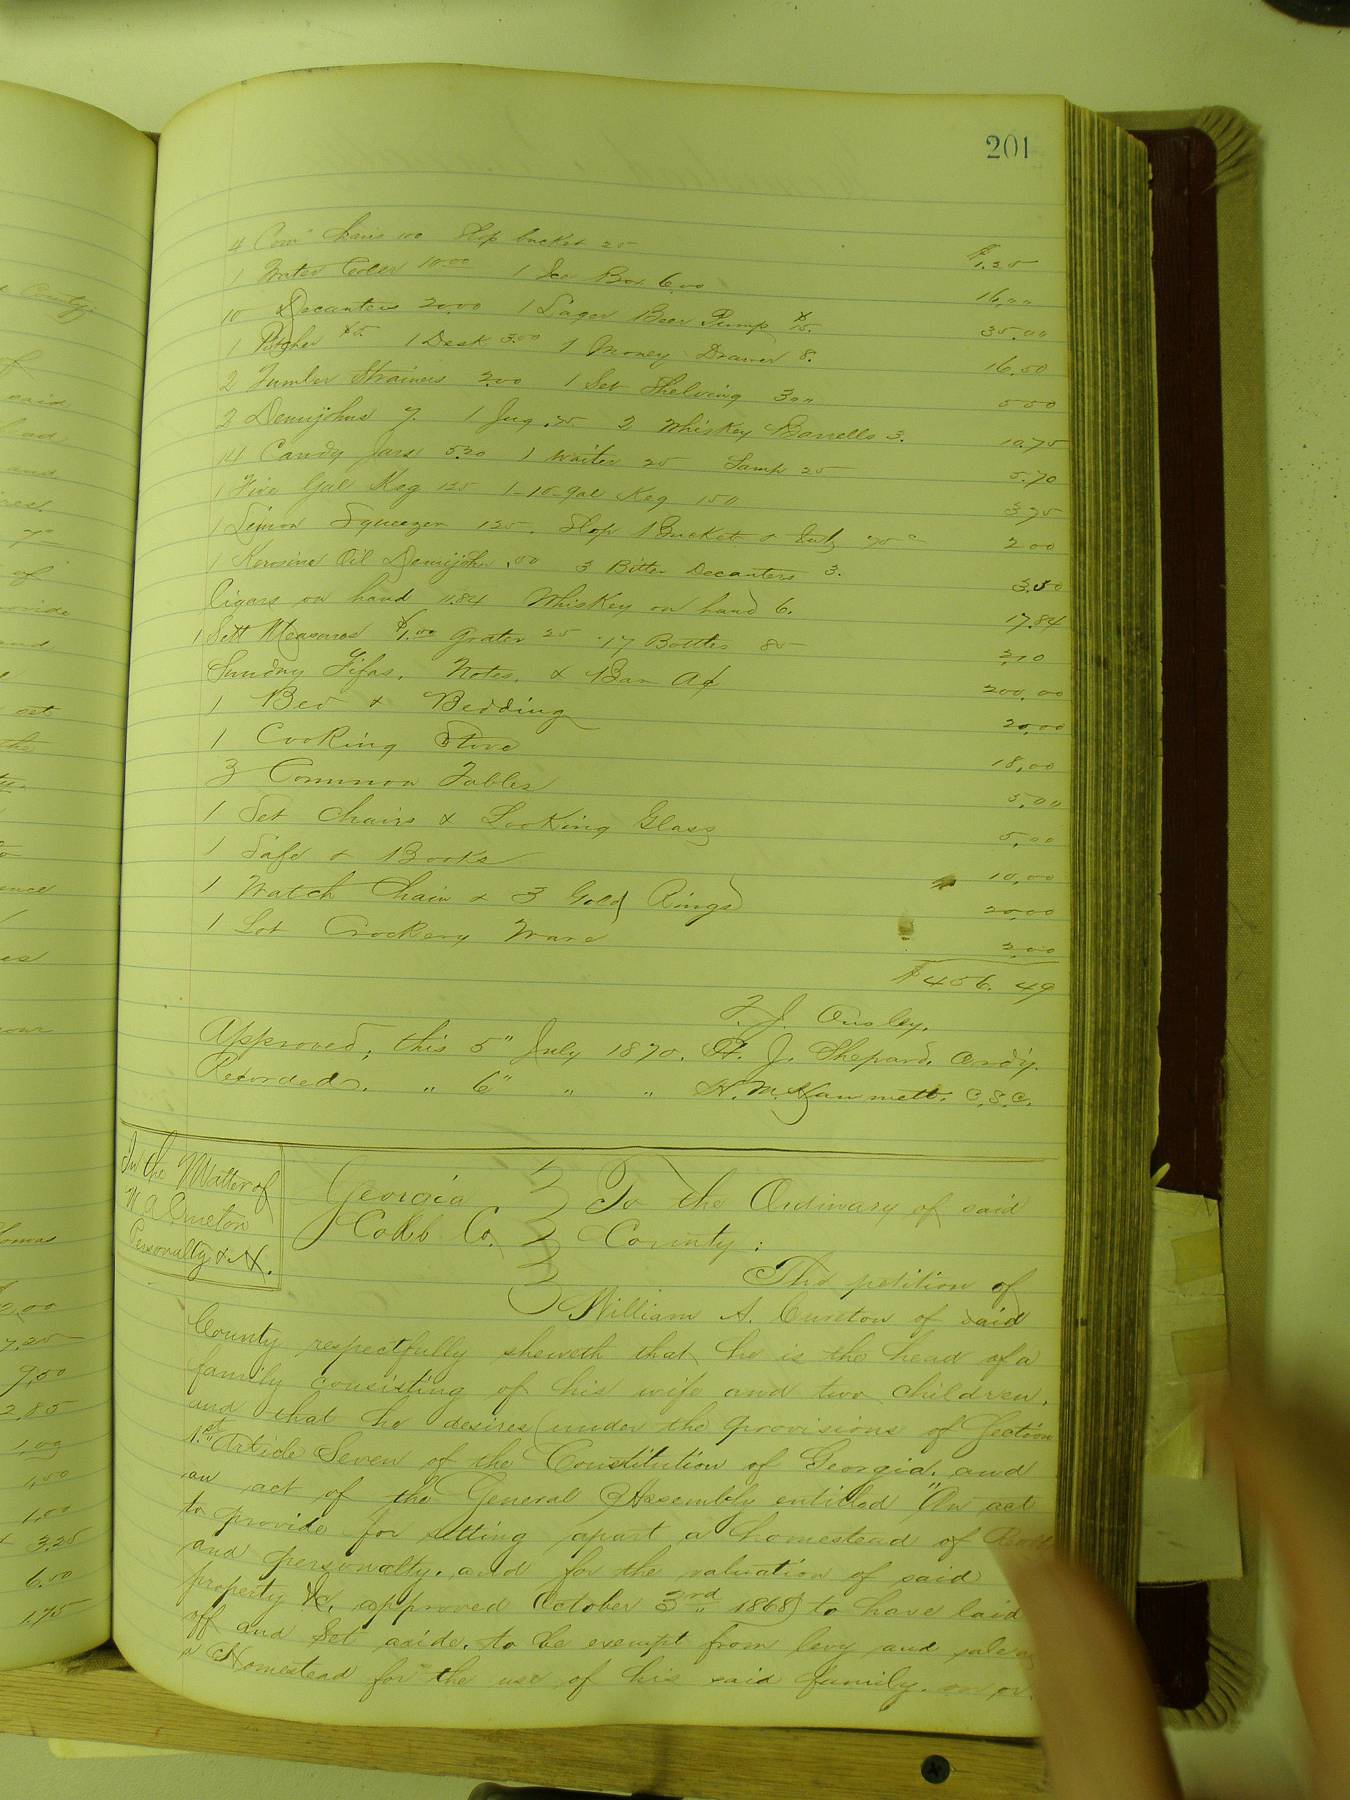 201
4 Com" Chairs 1.00 Slop bucket 25 $1.25
1 Water Cooler 10.00 1 Ice Box 6.00 16.00
10 Decanters 20.00 1 Lager Beer Pump $15. 35.00
1 Pitcher 1 Desk 5.00 1 Money Drawer 8. 16.50
2 Tumbler Strainers 2.00 1 Set Shelving 3.00 5.00
3 Demijohns 7. 1 Jug .75 2 Whiskey Barrells 3. 10.75
14 Candy Jars 5.20 1 Waiter 25 Lamp 25 5.70
1 Five Gal Keg 1.25 1-10-gal Keg 1.50
1 Lemon Squeezer 1.25. Slop Bucket & 75 2.00
1 Kerosine Oil Demijohn .50 3 Bitter Decanters 3. 3.50
Cigars on hand 11.84 Whiskey on hand 6. 17.84
1 Sett Measures $1.00 Grater 25 17 Bottles 85 2.10
Sunday Fifas. Notes. & Bar A¢ 200.00
1 Bed & Bedding 20.00
1 Cooking Stove 18.00
3 Common Tables 5.00
1 Set Chairs & Looking Glass 5.00
1 Safe & Books 10.00
1 Watch Chain & 3 Gold Rings 20.00
1 Lot Crockery Ware 2.00
$456.49
T. J. Ousley.
Approved, this 5" July 1870. H. J. Shepard. Ordy.
Recorded. " 6" " " H. M. Hammett. C.S.C.
In the Matter of
W A Cureton
Personalty & X.
Georgia To the Ordinary of said
Cobb Co. County:
The petition of
William A. Cureton of said
County respectfully sheweth that he is the head of a
family consisting of his wife and two children.
and that he desires (under the provisions of Section
1.st Article Seven of the Constitution of Georgia. and
an act of the General Assembly entitled "An act
to provide for setting apart a homestead of
and personalty. and for the valuation of said
property &c. approved October 3rd 1868) to have laid
off and set aside. to be exempt from levy and sale as
a Homestead for the use of his said family.
County.
of
said
and
of
provide
and
set
the
Thomas
2.00
7.25
9.00
2.85
1.00
1.50
1.00
3.25
6.50
1.75